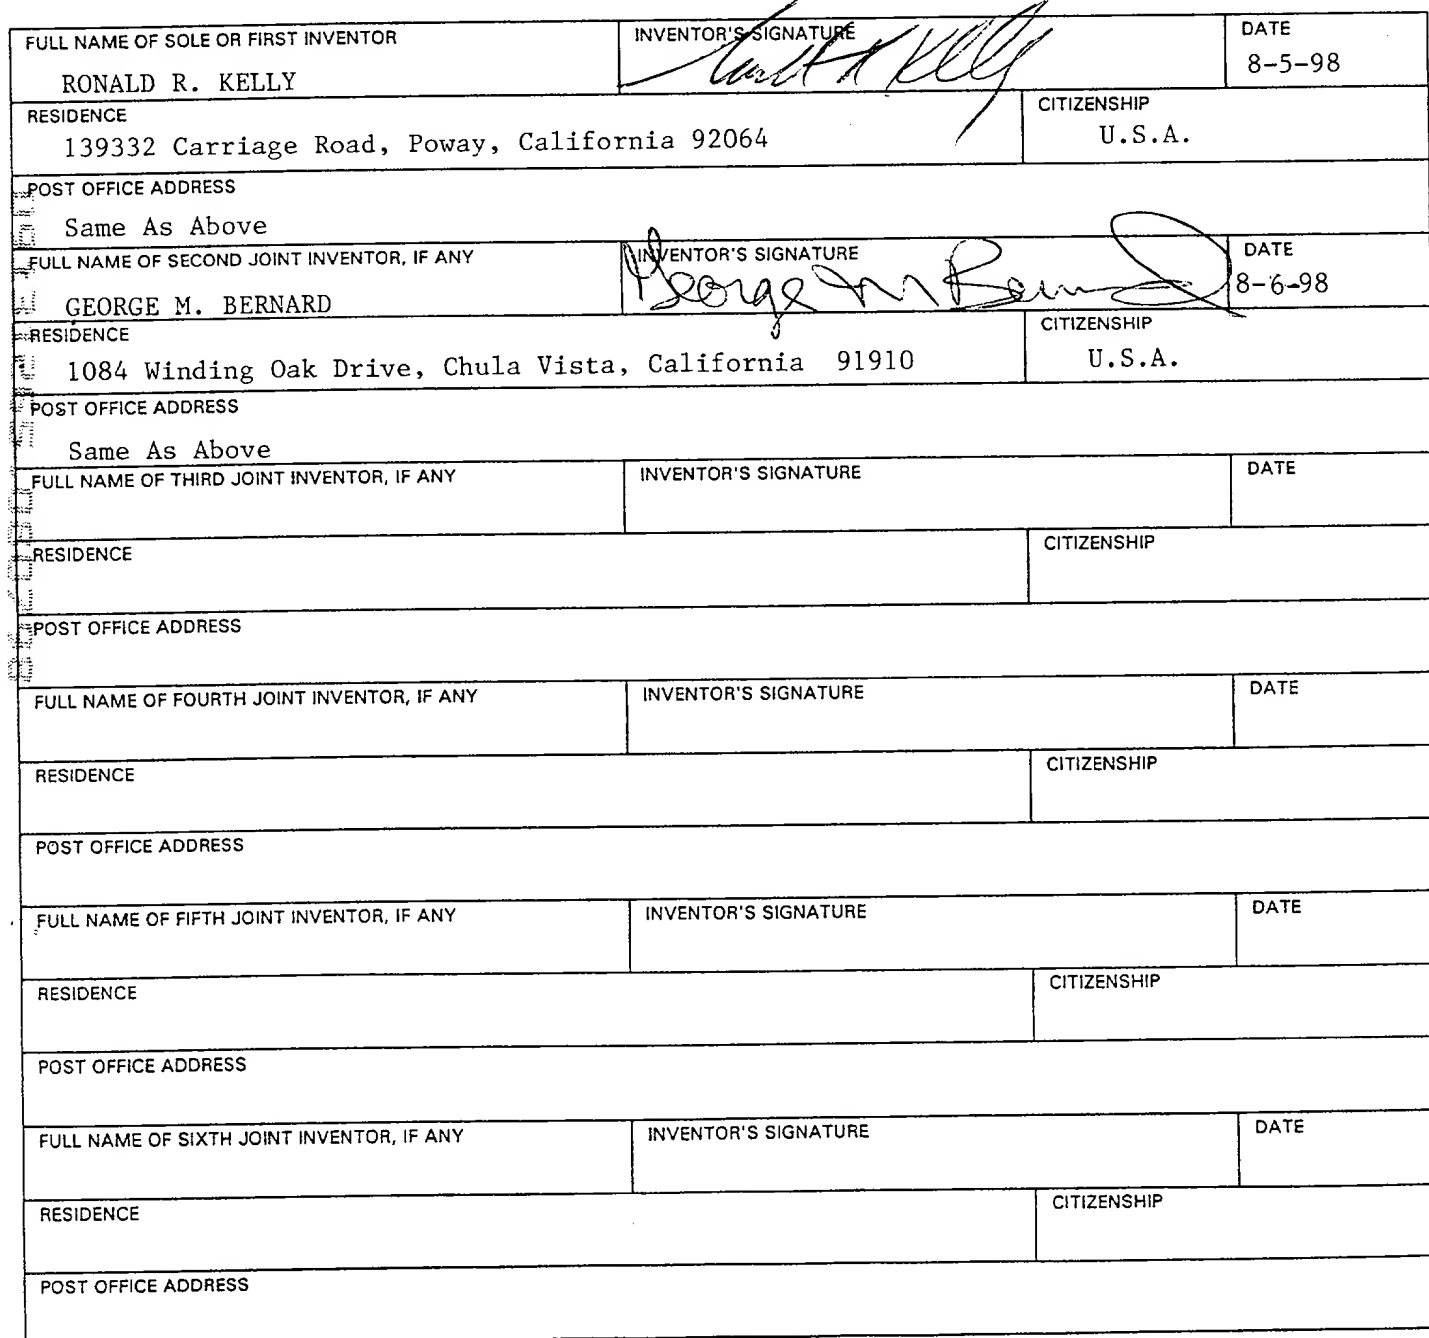 FULL NAME OF SOLE OR FIRST INVENTOR INVENTOR'S SIGNATURE DATE
RONALD R. KELLY Kelly 8-5-98
RESIDENCE CITIZENSHIP
139332 Carriage Road, Poway, California 92064 U.S.A.
POST OFFICE ADDRESS
Same As Above
FULL NAME OF SECOND JOINT INVENTOR, IF ANY INVENTOR'S SIGNATURE DATE
GEORGE M. BERNARD George M Bernard 8-6-98
RESIDENCE CITIZENSHIP
1084 Winding Oak Drive, Chula Vista, California 91910 U.S.A.
POST OFFICE ADDRESS
Same As Above
FULL NAME OF THIRD JOINT INVENTOR, IF ANY INVENTOR'S SIGNATURE DATE
RESIDENCE CITIZENSHIP
POST OFFICE ADDRESS
FULL NAME OF FOURTH JOINT INVENTOR, IF ANY INVENTOR'S SIGNATURE DATE
RESIDENCE CITIZENSHIP
POST OFFICE ADDRESS
FULL NAME OF FIFTH JOINT INVENTOR, IF ANY INVENTOR'S SIGNATURE DATE
RESIDENCE CITIZENSHIP
POST OFFICE ADDRESS
FULL NAME OF SIXTH JOINT INVENTOR, IF ANY INVENTOR'S SIGNATURE DATE
RESIDENCE CITIZENSHIP
POST OFFICE ADDRESS